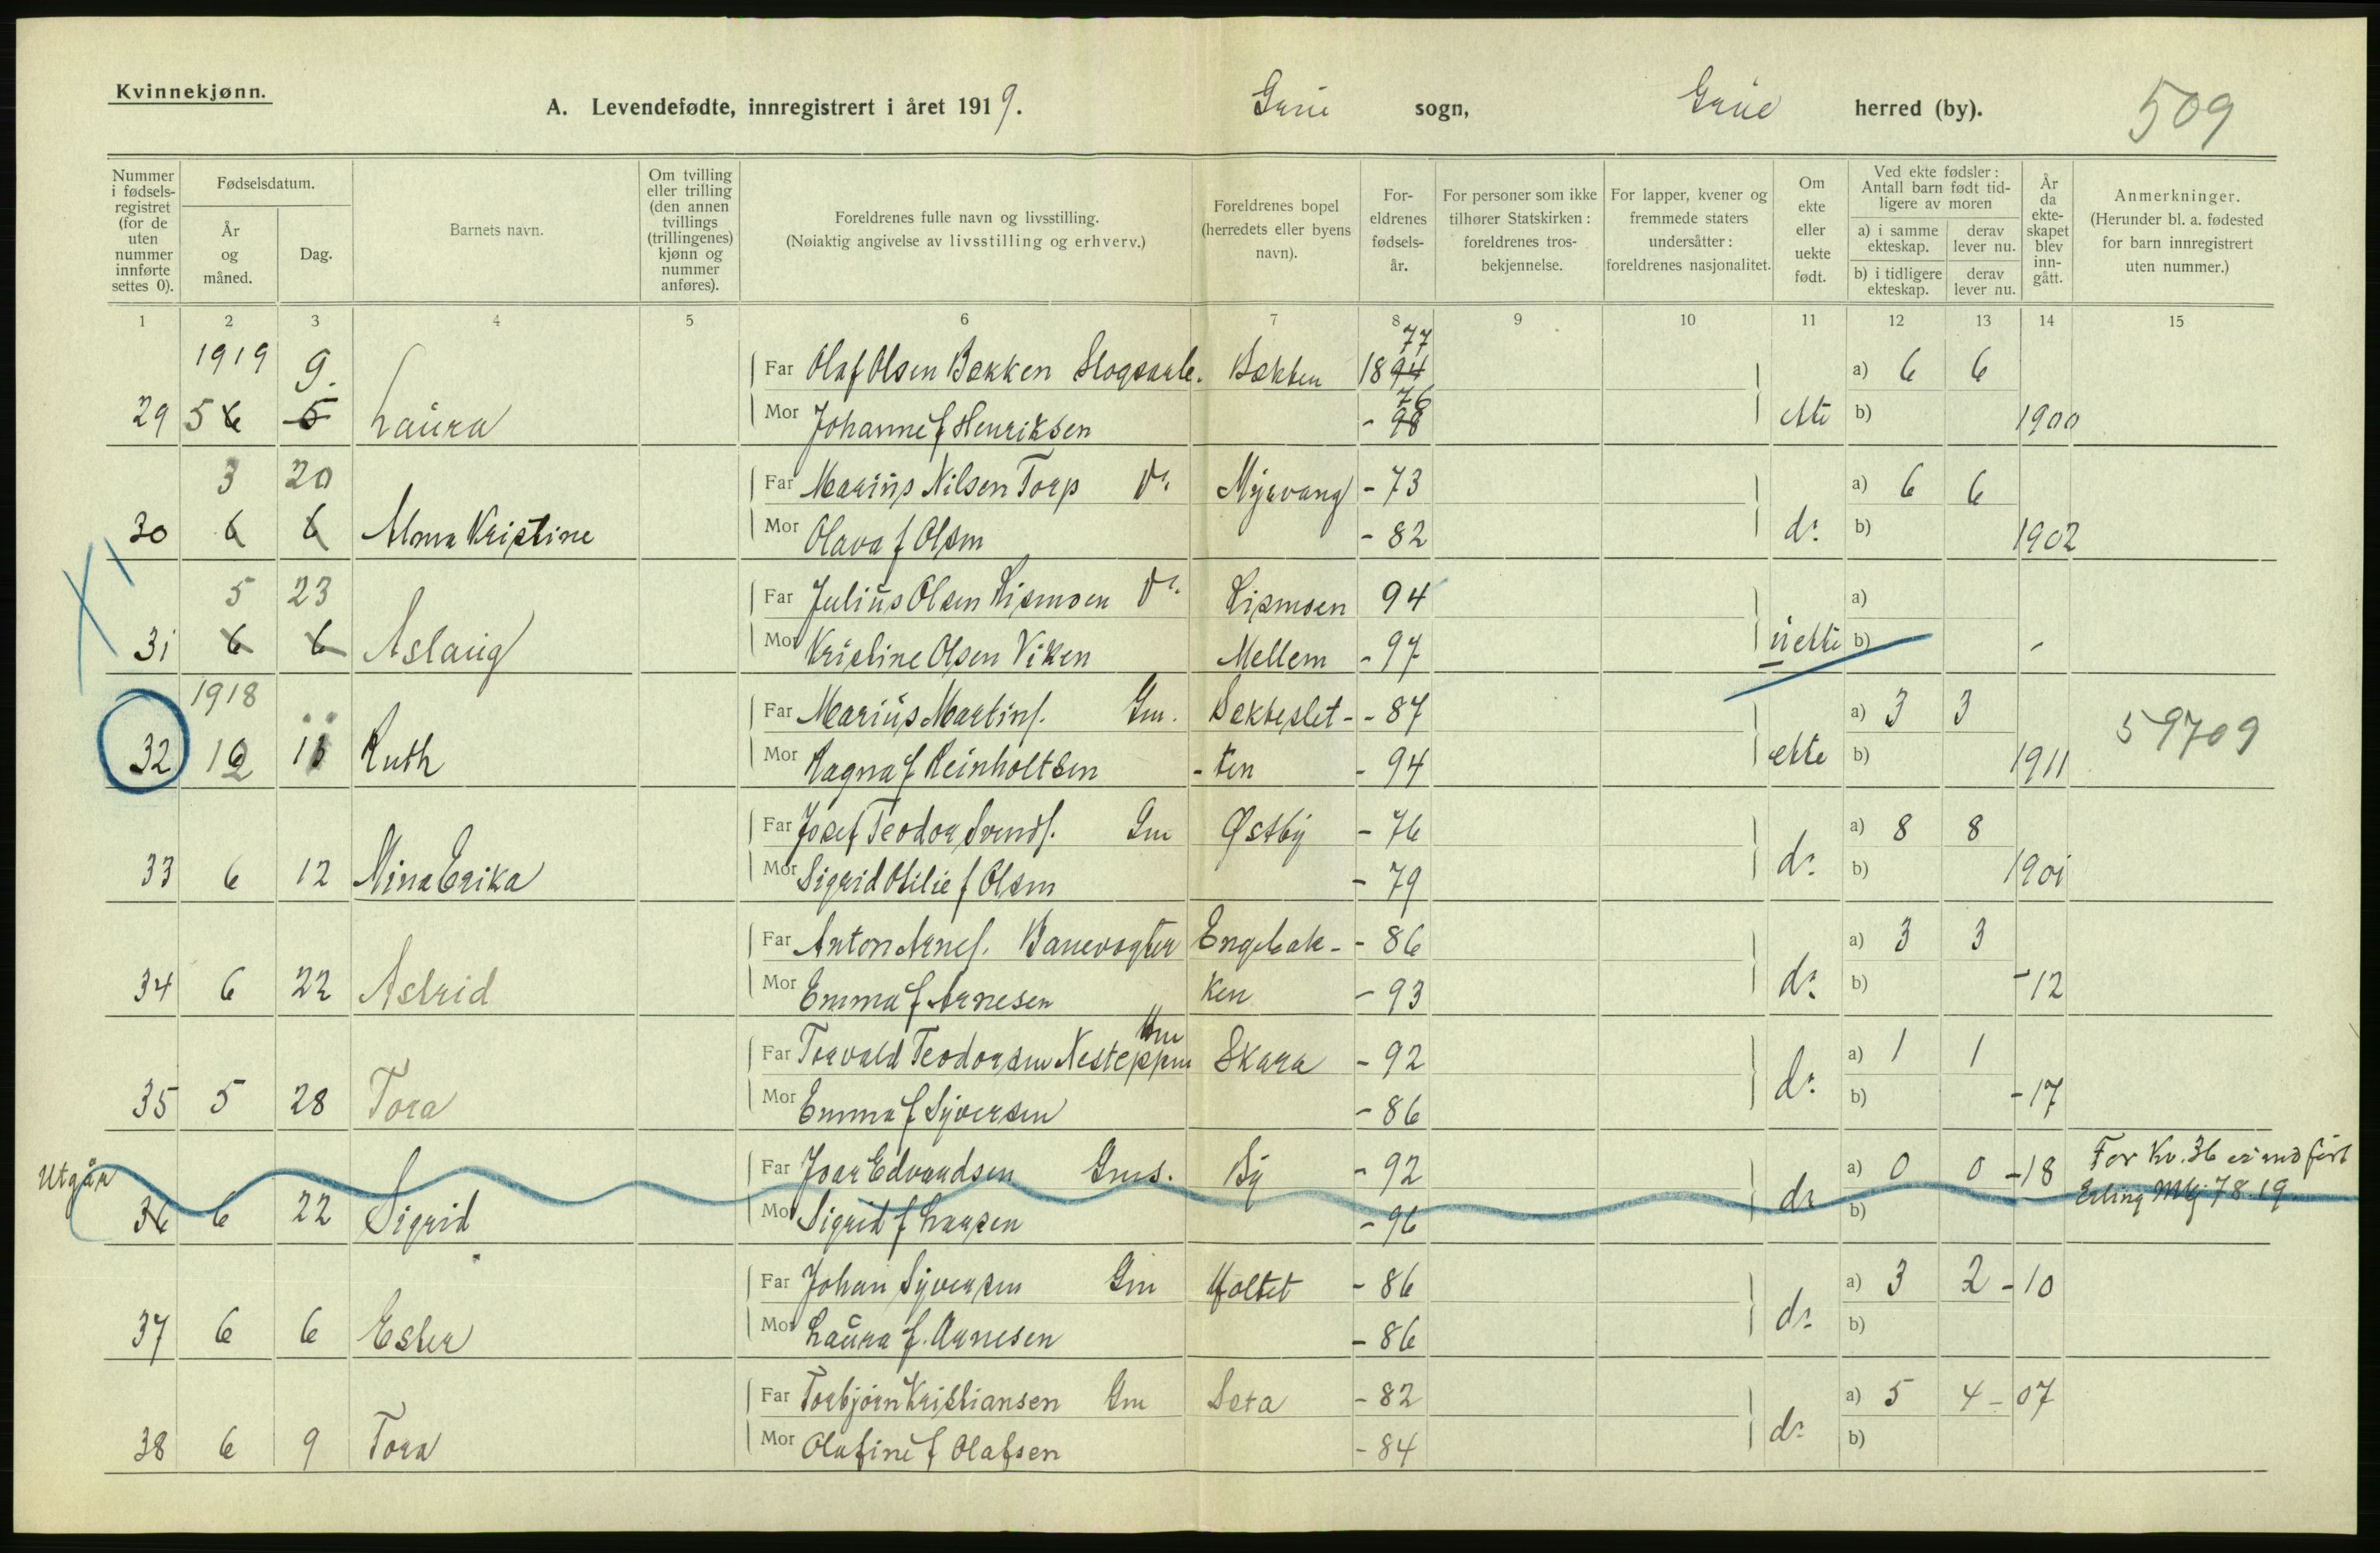 Kvinnekjønn.
A. Levendefødte, innregistrert i året 1919. Grue sogn, Grue herred (by). 509
Nummer i fødselsregistret (for de uten nummer innførte settes 0).
Fødselsdatum.
År og måned.
Dag.
Barnets navn.
Om tvilling eller trilling (den annen tvillings (trillingenes) kjønn og nummer anføres).
Foreldrenes fulle navn og livsstilling.
(Nøiaktig angivelse av livsstilling og erhverv.)
Foreldrenes bopel (herredets eller byens navn).
Foreldrenes fødselsår.
For personer som ikke tilhører Statskirken: foreldrenes trosbekjennelse.
For lapper, kvener og fremmede staters undersåtter: foreldrenes nasjonalitet.
Om ekte eller uekte født.
Ved ekte fødsler: Antall barn født tidligere av moren
a) i samme ekteskap. derav lever nu.
b) i tidligere ekteskap. derav lever nu.
År da ekteskapet blev inngått.
Anmerkninger.
(Herunder bl. a. fødested for barn innregistrert uten nummer.)
1 2 3 4 5 6 7 8 9 10 11 12 13 14 15
1919 9. Far Olaf Olsen Bækken Skogsarb. Bækken 1894 77 a) 6 6
29 5 6 5 Laura Mor Johanne f Henriksen - 98 76 ekte b) 1900
3 20 Far Marius Nilsen Torp do Myrvang - 73 a) 6 6
30 6 6 Alma Kristine Mor Olava f Olsen - 82 do b) 1902
5 23 Far Julius Olsen Lismoen do Lismoen 94 a)
31 6 6 Aslaug Mor Kristine Olsen Viken Mellem - 97 uekte b) -
1918 Far Marius Martins. Gm. Bækkeslet- - 87 a) 3 3 59709
32 12 11 Ruth Mor Ragna f Reinholtsen -ten - 94 ekte b) 1911
Far Josef Teodor Svends. Gm Østby - 76 a) 8 8
33 6 12 Mina Erika Mor Sigrid Otilie f Olsen - 79 do b) 1901
Far Anton Arnes. Banevogter Engebak- - 86 a) 3 3
34 6 22 Astrid Mor Emma f Arnesen ken - 93 do b) -12
Gm
Far Torvald Teodorsen Nesteppen Skara - 92 a) 1 1
35 5 28 Tora Mor Emma f Syversen - 86 do b) -17
Utgår Far Joar Edvardsen Gms. By - 92 a) 0 0 -18 For Kv. 36 er indført
36 6 22 Sigrid Mor Sigrid f Larsen - 96 do b) Erling Mkj 78.19.
Far Johan Syversen Gm Holtet - 86 a) 3 2 -10
37 6 6 Ester Mor Laura f. Arnesen - 86 do b)
Far Torbjørn Kristiansen Gm Seta - 82 a) 5 4 -07
38 6 9 Tora Mor Olafine f Olafsen - 84 do b)